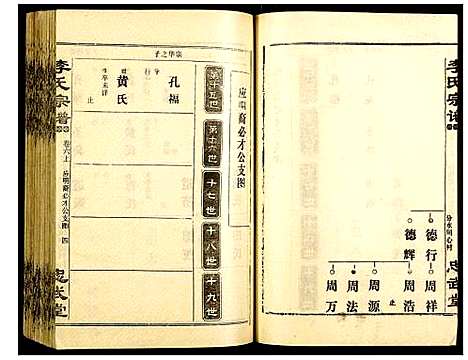 李氏宗譜
分水同心村
忠武堂
德行
周祥
德輝
周浩
止
周源
周法
周万
应明裔必才公支图
第十五世
第十六世
十七世
十八世
十九世
宗华之子
孔福
生卒未详
黄氏
止
李氏宗譜
卷六上
应明裔必才公支图
四
忠武堂